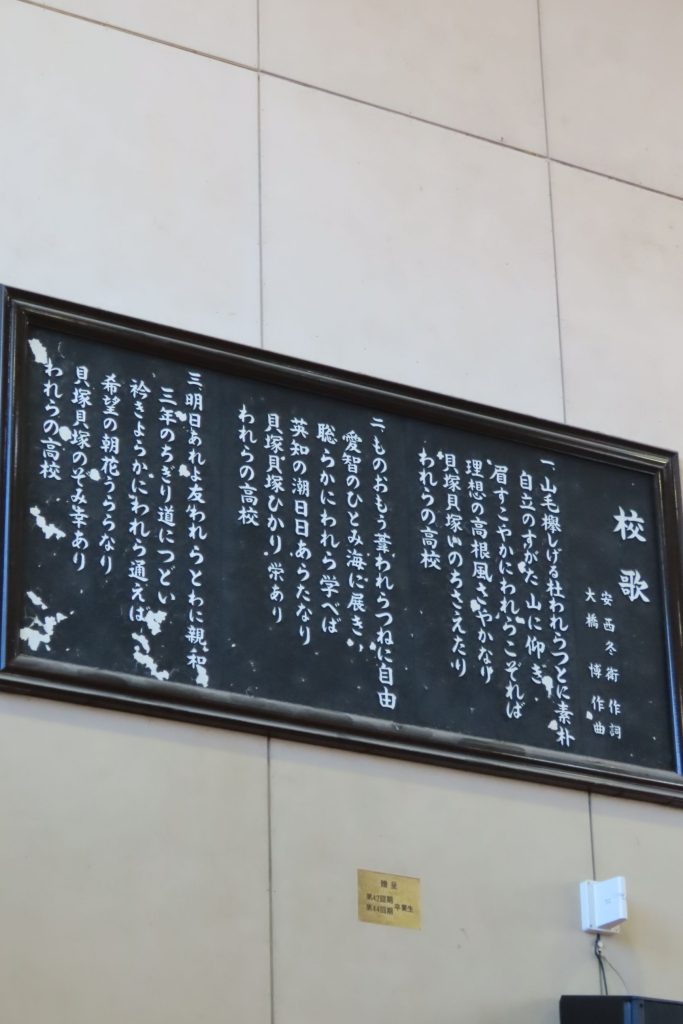 校歌
安西冬衛 作詞
大橋 博 作曲
一、山毛欅しげる杜われらつとに素朴
自立のすがた 山に仰ぎ
眉すこやかにわれらこぞれば
理想の高根風さやかなり
貝塚貝塚いのちさえたり
われらの高校
二、ものおもう葦われらつねに自由
愛智のひとみ海に展き
聡らかにわれら学べば
英知の潮日日あらたなり
貝塚貝塚ひかり栄あり
われらの高校
三、明日あれよ友われらとわに親和
三年のちぎり道につどい
衿きよらかにわれら通えば
希望の朝花うららなり
貝塚貝塚のぞみ幸あり
われらの高校
贈呈
第42回期
第44回期 卒業生